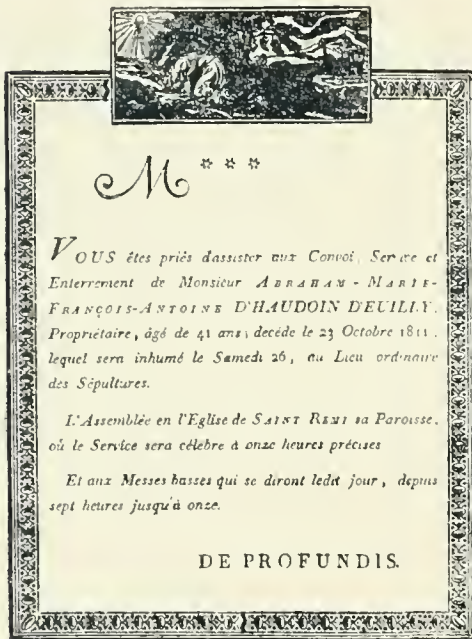 M * * *
VOUS êtes priés d'assister aux Convoi, Service et
Enterrement de Monsieur ABRAHAM-MARIE-
FRANÇOIS-ANTOINE D'HAUDOIN D'EUILLY,
Propriétaire, âgé de 41 ans, décédé le 23 Octobre 1811,
lequel sera inhumé le Samedi 26, au Lieu ordinaire
des Sépultures.
L'Assemblée en l'Eglise de SAINT REMI sa Paroisse,
où le Service sera célébré à onze heures précises
Et aux Messes basses qui se diront ledit jour, depuis
sept heures jusqu'à onze.
DE PROFUNDIS.